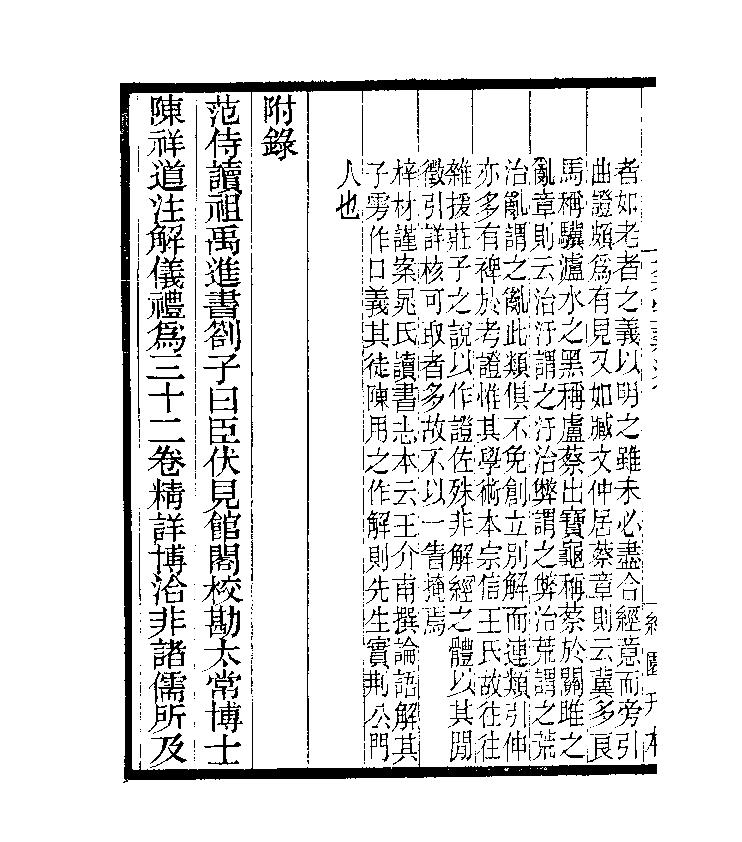 者如老者之義以明之雖未必盡合經意而旁引
曲證頗爲有見又如臧文仲居蔡章則云冀多良
馬稱驥瀘水之黑稱盧蔡出寶龜稱蔡於關雎之
亂章則云治汙謂之汙治弊謂之弊治荒謂之荒
治亂謂之亂此類俱不免創立別解而連類引伸
亦多有裨於考證惟其學術本宗信王氏故往往
雜援莊子之說以作證佐殊非解經之體以其閒
徵引詳核可取者多故不以一眚掩焉
梓材謹案晁氏讀書志本云王介甫撰論語解其
子雱作口義其徒陳用之作解則先生實荆公門
人也
附錄
范侍讀祖禹進書劄子曰臣伏見館閣校勘太常博士
陳祥道注解儀禮爲三十二卷精詳博洽非諸儒所及